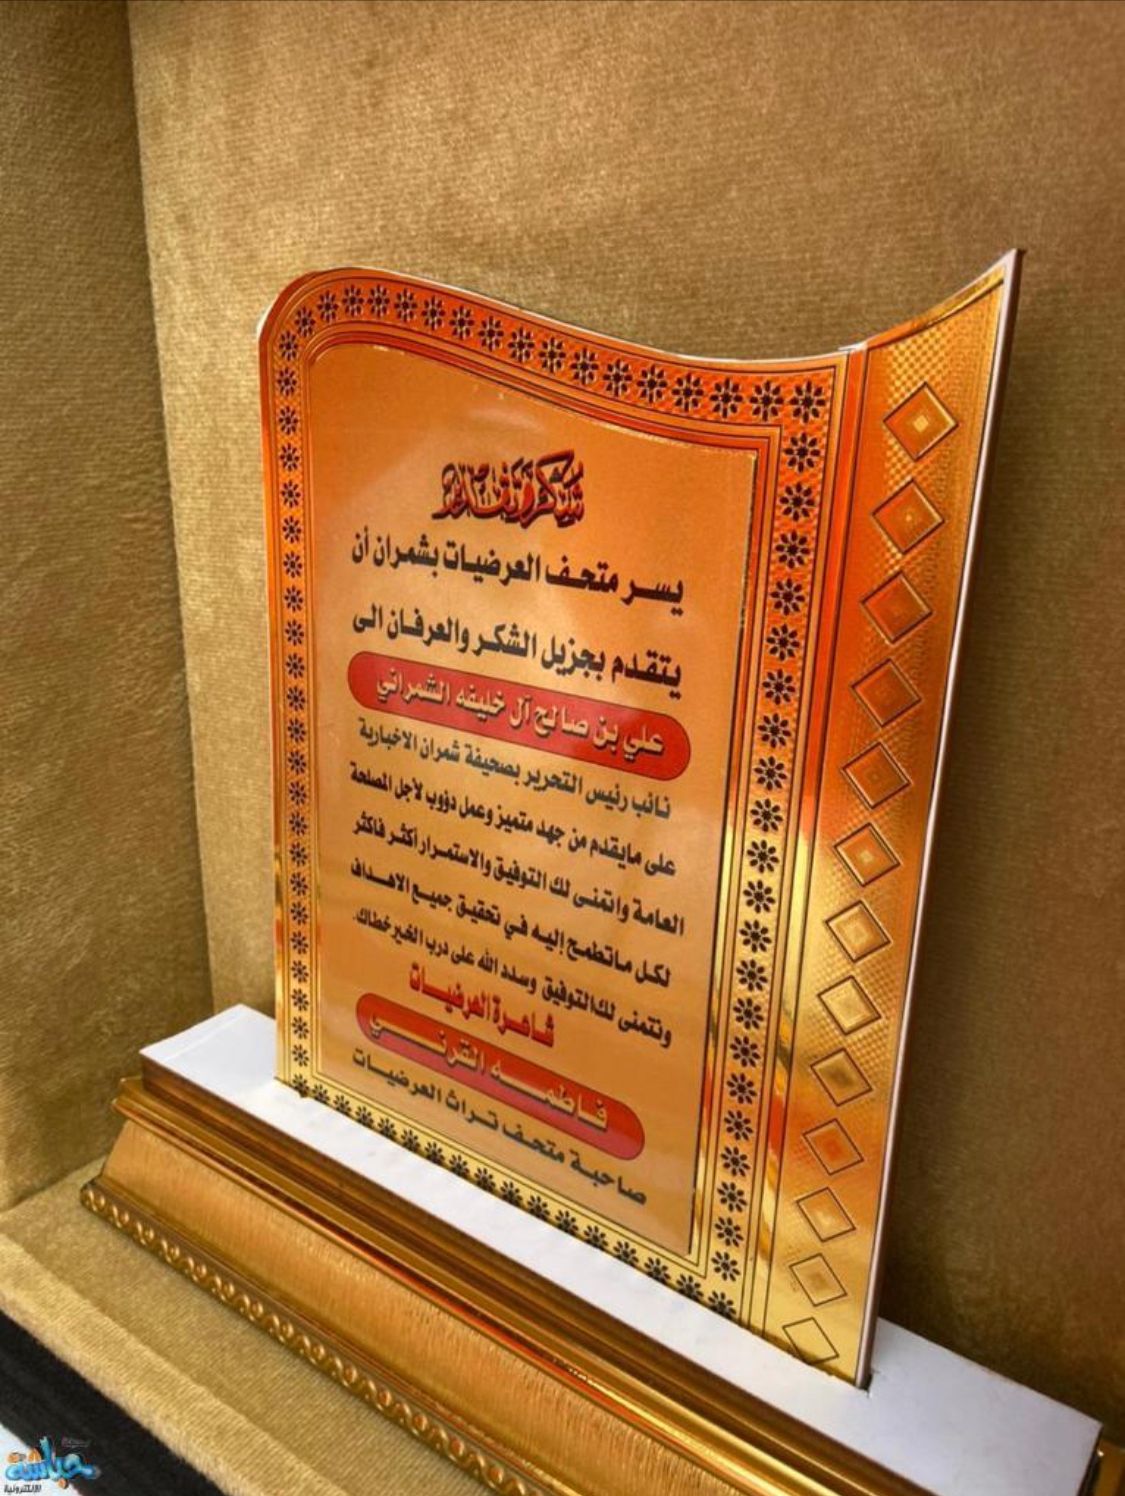 شكر وتقدير
يسر متحف العرضيات بشمران أن
يتقدم بجزيل الشكر والعرفان الى
علي بن صالح آل خليفه الشمراني
نائب رئيس التحرير بصحيفة شمران الاخبارية
على مايقدم من جهد متميز وعمل دؤوب لأجل المصلحة
العامة واتمنى لك التوفيق والاستمرار أكثر فاكثر
لكل ماتطمح إليه في تحقيق جميع الاهداف
ونتمنى لك التوفيق وسدد الله على درب الخير خطاك.
شاعرة العرضيات
فاطمه القرني
صاحبة متحف تراث العرضيات
حباشة
الإلكترونية